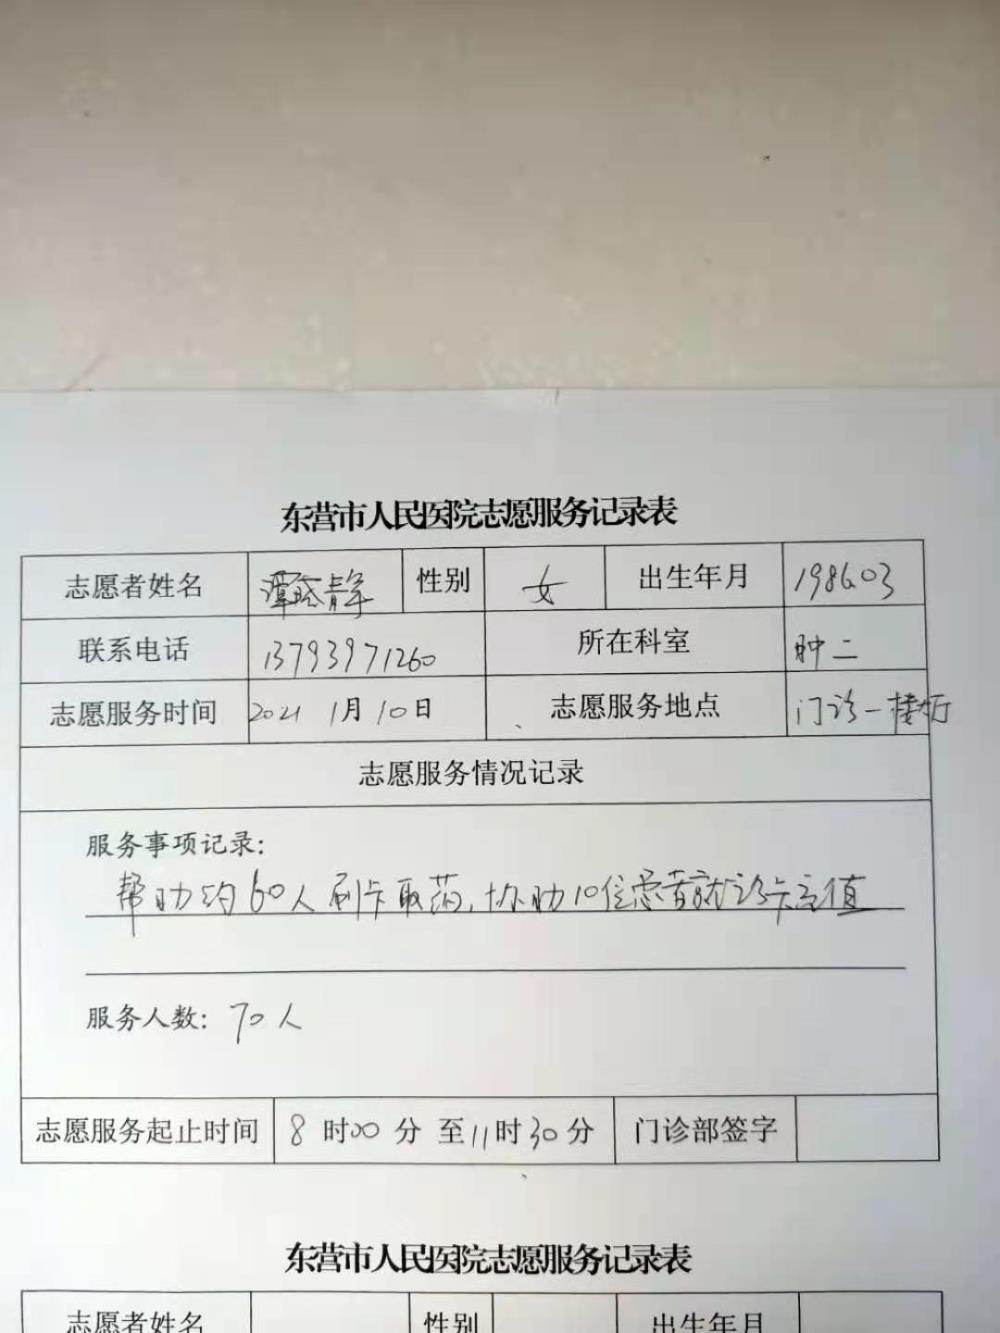 东营市人民医院志愿服务记录表
志愿者姓名 谭晓静 性别 女 出生年月 198603
联系电话 13793971260 所在科室 肿二
志愿服务时间 2021 1月10日 志愿服务地点 门诊一楼大厅
志愿服务情况记录
服务事项记录:
帮助约60人刷卡取药,协助10位患者就诊卡充值
服务人数: 70人
志愿服务起止时间 8时00分至11时30分 门诊部签字
东营市人民医院志愿服务记录表
志愿者姓名 性别 出生年月